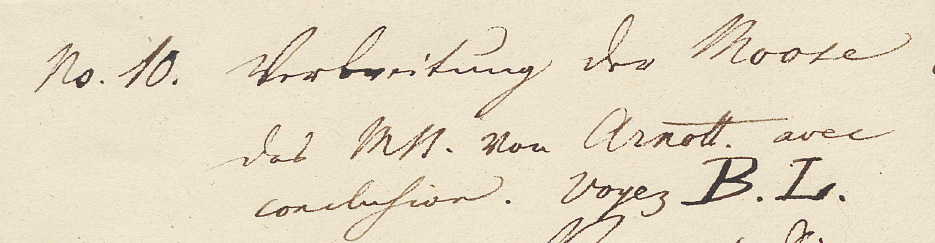 No. 10. Verbreitung der Moose
das MSS. von Arnott. avec
conclusion. Voyez B. L.